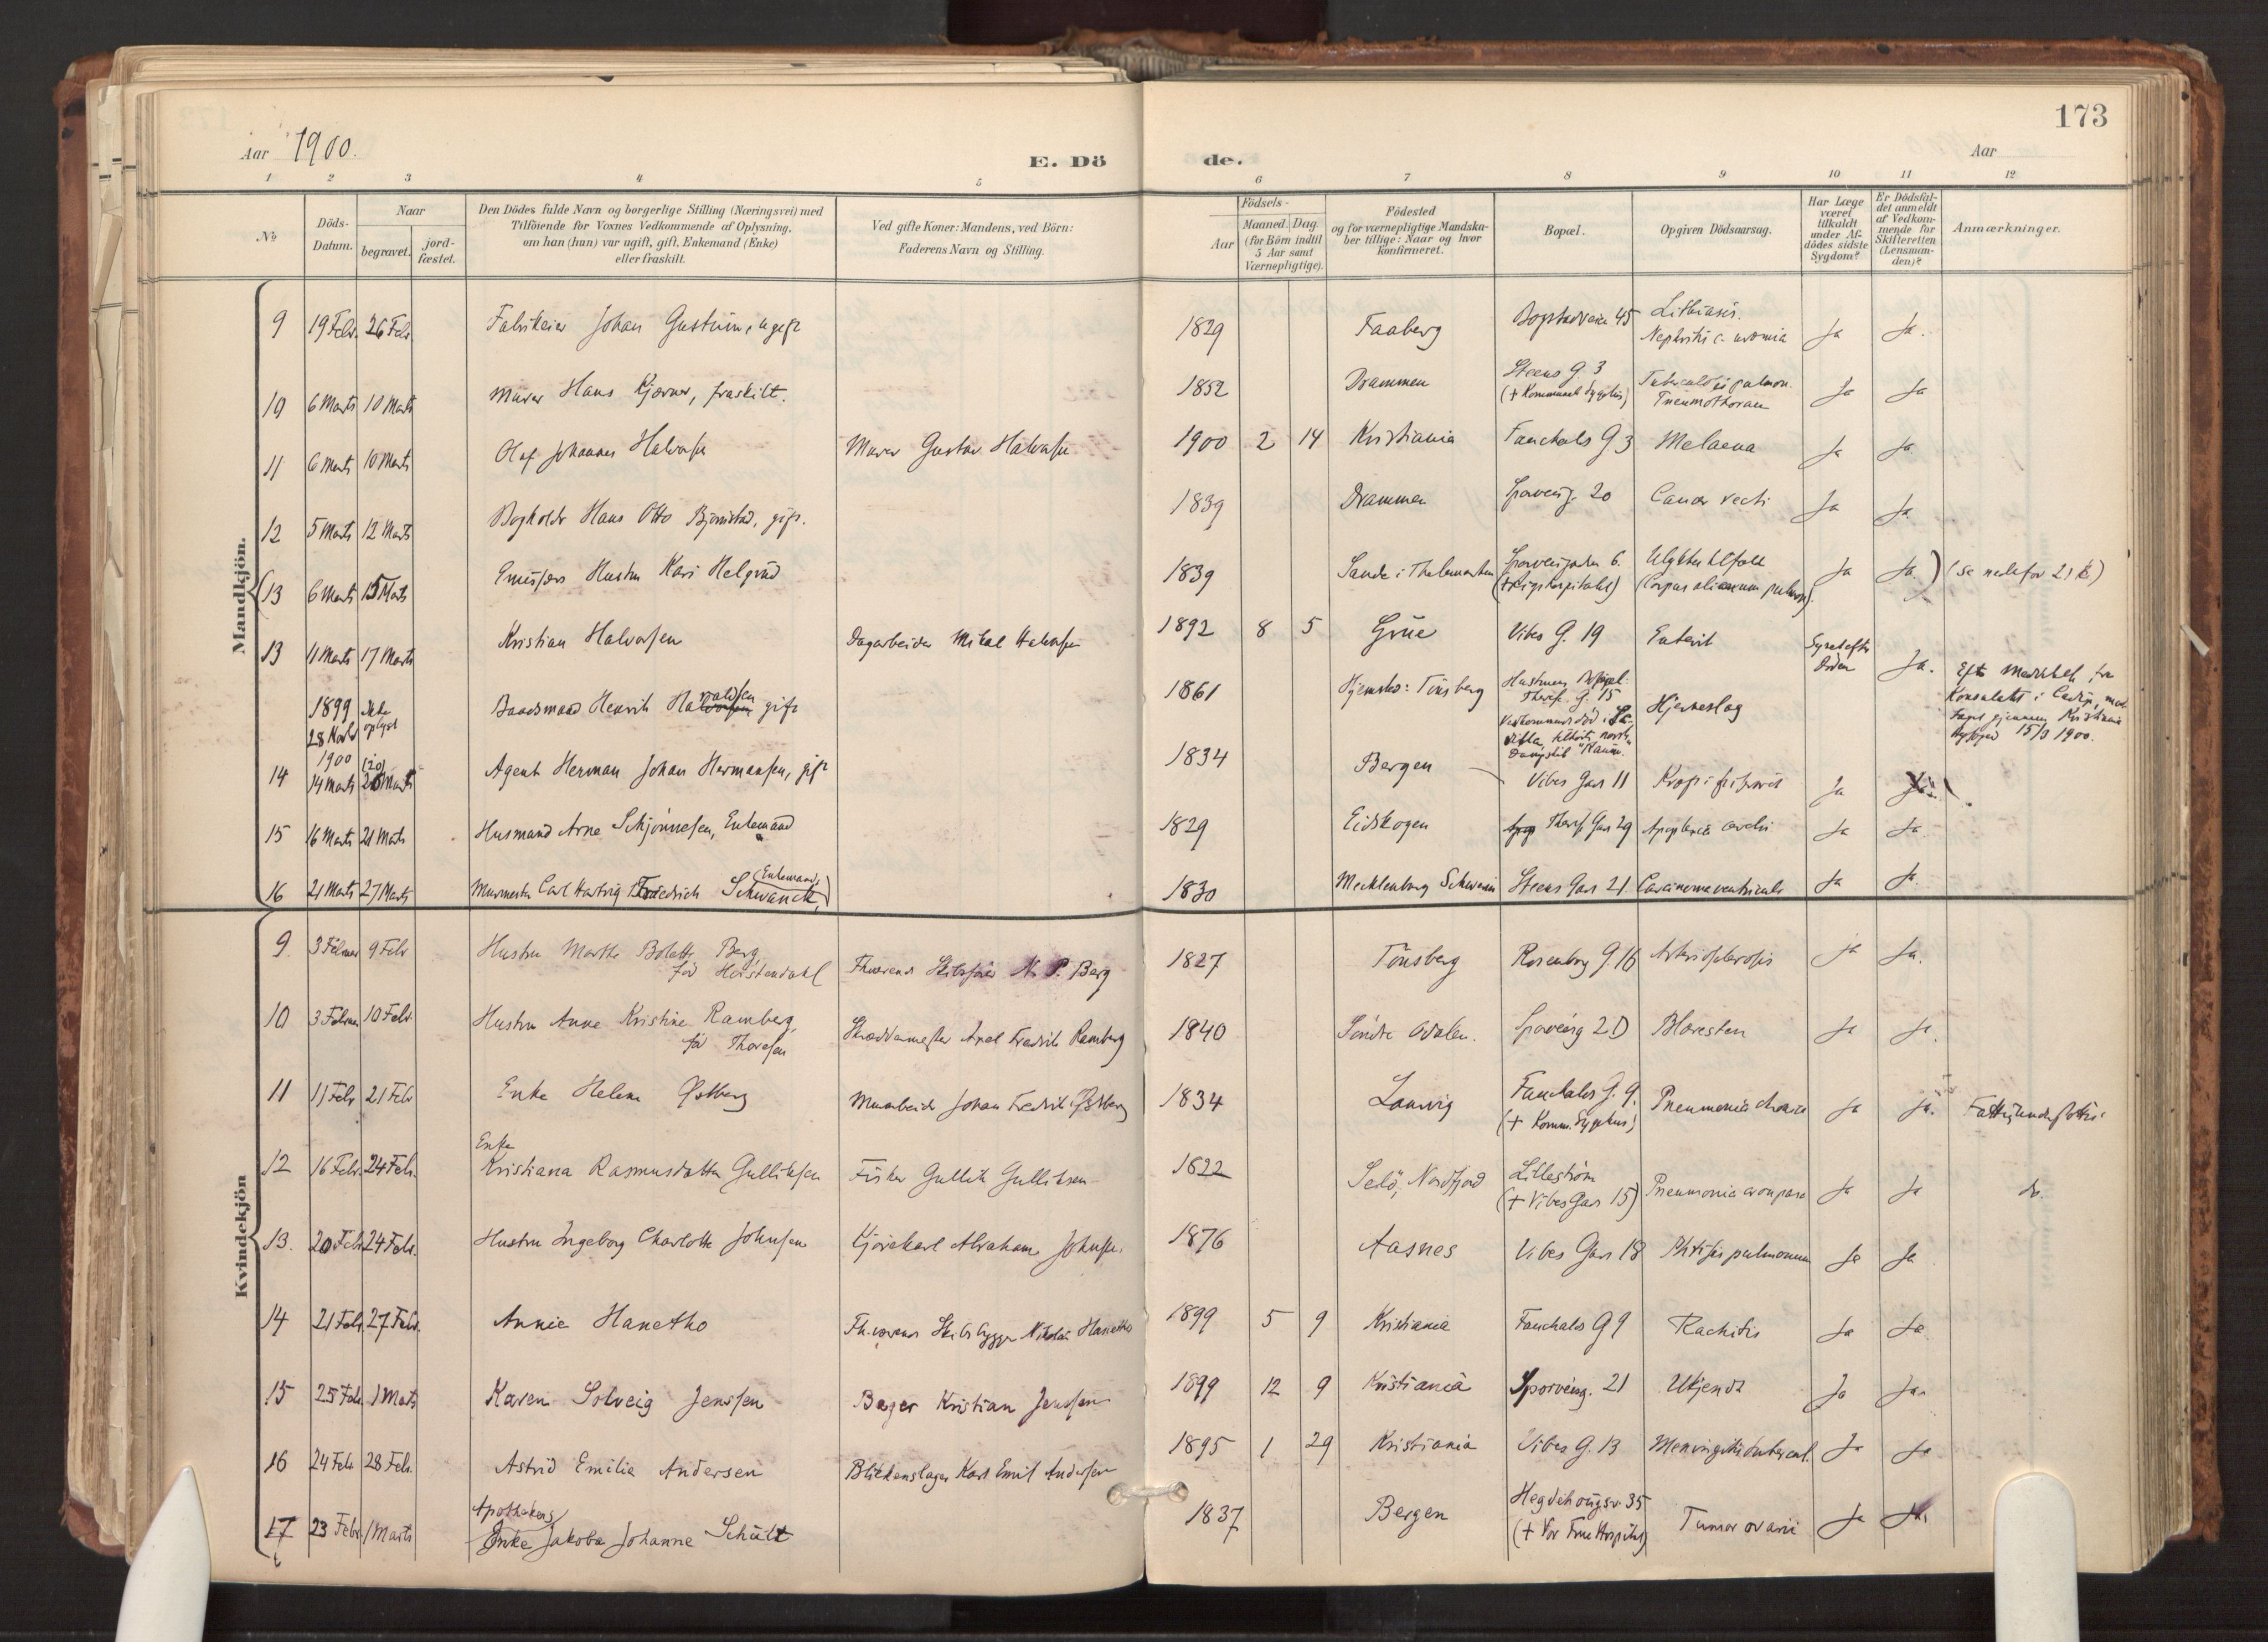 173
Aar 1900.
E. Dö
de.
Aar
1 2 3 4 5 6 7 8 9 10 11 12
No
Döds-
Datum.
Naar
begravet.
jord-
fæstet.
Den Dödes fulde Navn og borgerlige Stilling (Næringsvei) med
Tilföiende for Voxnes Vedkommende af Oplysning,
om han (hun) var ugift, gift, Enkemand (Enke)
eller fraskilt.
Ved gifte Koner: Mandens, ved Börn:
Faderens Navn og Stilling.
Födsels-
Aar
Maaned. Dag.
(for Börn indtil
5 Aar samt
Værnepligtige).
Födested
og for værnepligtige Mandska-
ber tillige: Naar og hvor
konfirmeret.
Bopæl.
Opgiven Dödsaarsag.
Har Læge
været
tilkaldt
under Af-
dödes sidste
Sygdom?
Er Dödsfal-
det anmeldt
af Vedkom-
mende for
Skifteretten
(Lensman-
den)?
Anmærkninger.
Mandkjön.
9 19 Febr. 26 Febr. Johan ugift 1829 Faaberg 45 Lithiasis.
Nephritis c. uræmia Ja Ja.
10 6 Marts 10 Marts Murer Hans Kjærner, fraskilt. 1852 Drammen Steens G 3
(+ Kommunalt Sygehus) pulmon.
Pneumothorax Ja Ja
11 6 Marts 10 Marts Olaf Johannes Halvorsen Murer Gustav Halvorsen 1900 2 14 Kristiania Fauchalds G 3 Melaena Ja Ja.
12 5 Marts 12 Marts Bogholder Hans Otto gift. 1839 Drammen Sporveisg. 20 Cancer recti Ja Ja
(13 6 Marts 15 Marts Hustru Kari 1839 Sande i Thelemarken Sporveisgaden 6.
(+ Rigshospitalet) Ulykkestilfælde
(Corpus alienum Ja Ja.) (Se nedefor 21 K)
13 11 Marts 17 Marts Kristian Halvorsen Dagarbeider Mikal Halvorsen 1892 8 5 Grue Vibes G. 19 Enterit Synet efter
Döden Ja.
1899
28 Ikke
oplyst Baadsmand Henrik gift 1861 Hjemsted: Tönsberg Hustruens Bopæl:
G. 15
Hjerneslag Efter Meddelelse fra
Konsulatet i Cadiz,
gjennem Kristiania
15/3 1900.
14 1900
14 Marts (20)
Marts Agent Herman Johan Hermansen, gift 1834 Bergen Vibes Gade 11 Kropi Ja
15 16 Marts 21 Marts Husmand Arne Schjönnesen, Enkemand 1829 Eidskogen Gade 29 Apoplexia cerebri Ja Ja
16 21 Marts 27 Marts Murmester Carl Hartvig Friedrich Schwanck, (Enkemand) 1830 Mecklenburg Schwerin Steens Gade 21. Carcinoma ventriculi Ja Ja
Kvindekjön
9. 3 Februar 9 Febr Hustru Marthe Bolette Berg
föd Fhværende N. P. Berg 1827 Tönsberg Rosenborg G. 16 Arteriosclerosis Ja Ja.
10 3 Februar 10 Febr. Hustru Anne Kristine Ramberg,
föd Thoresen Skræddermester Axel Fredrik Ramberg 1840 Söndre Odalen. Sporveisg 2D Ja Ja.
11 11 Febr 21 Febr Enke Helene Østberg Murarbeider Johan Fredrik Østberg 1834 Laurvig Fauchalds G. 9.
(+ Komm. Sygehus) Pneumonia Ja Ja. Fattigunderstöttet.
12 16 Febr. 24 Febr. Enke
Kristiana Rasmusdatter Gulliksen Fisker Gullik Gulliksen 1822 Selö, Nordfjord Lilleström
(+ Vibes Gade 15) Pneumonia crouposa Ja Ja do.
13. 20 Febr 24 Febr. Hustru Ingeborg Charlotte Johnsen Kjörekarl Abraham Johnsen. 1876 Aasnes Vibes Gade 18 Phtisis pulmonum Ja Ja
14 21 Febr. 27 Febr. Annie Hanetho Fh.værende Skibsbygger Nikolai Hanetho 1899 5 9 Kristiania Fauchalds G 9 Rachitis Ja Ja
15 25 Febr 1 Marts Karen Solveig Jenssen Bager Kristian Jenssen 1899 12 9 Kristiania Sporveisg. 21 Ukjendt Ja Ja.
16 24 Febr 28 Febr. Astrid Emilie Andersen Blikkenslager Karl Emil Andersen 1895 1 29 Kristiania Vibes G. 13 Meningitis tubercul. Ja Ja
17 23 Febr. 1 Marts Apothekers
Enke Jakoba Johanne Schült 1837 Bergen Hegdehougsv. 35
(+ Vor Frue Hospital) Tumor ovarii Ja Ja.